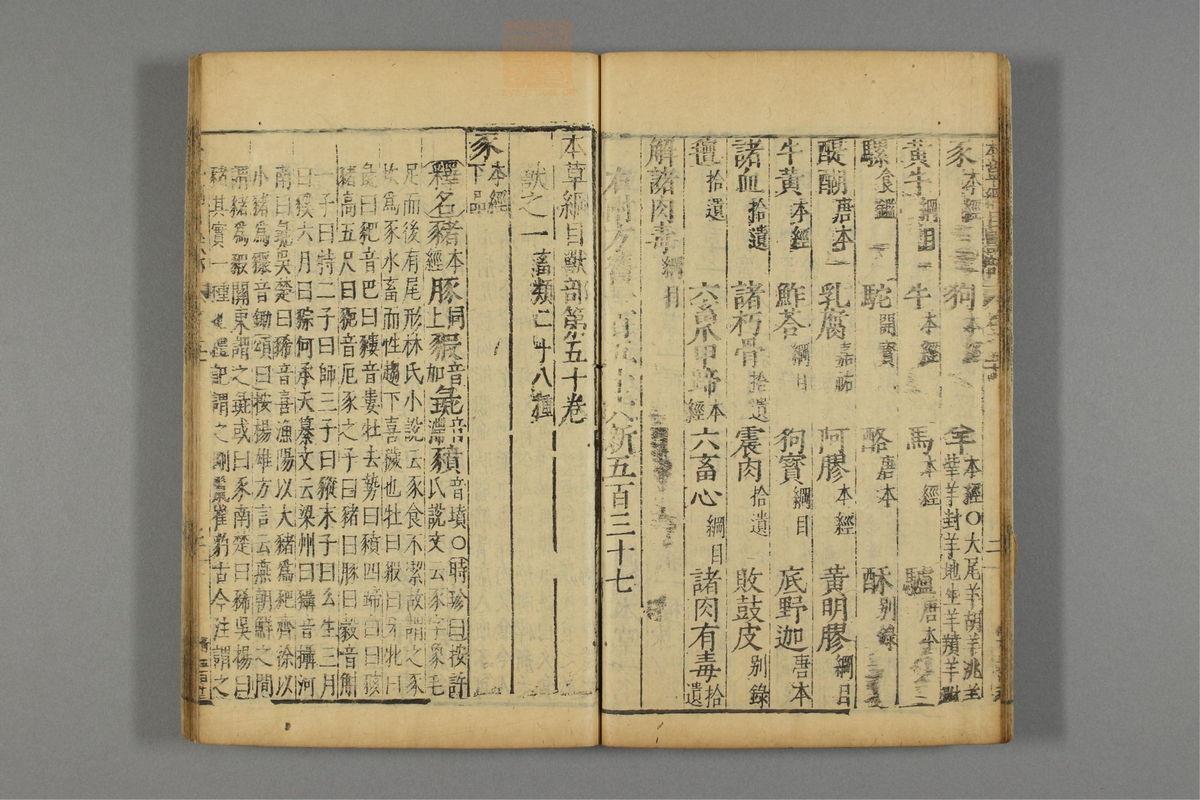 豕本經 狗本經 羊本經○大尾羊胡羊洮羊䔥羊封羊地生羊羵羊
黄牛綱目 牛本經 馬本經 驢唐本
騾食鑑 駝開寶 酪唐本 酥别錄
醍醐唐本 乳腐嘉祐 阿膠本經 黄明膠綱目
牛黄本經 鮓荅綱目 狗寶綱目 底野迦唐本
諸血拾遺 諸朽骨拾遺 震肉拾遺 敗鼓皮别錄
氊拾遺 六畜爪甲蹄本經 六畜心綱目 諸肉有毒拾遺
解諸肉毒綱目
右附方 新五百三十七
本草綱目獸部第五十卷
獸之一 畜類二十八種
豕本經下品
釋名豬本經豚同上豭音加彘音滯豶音墳○時珍曰按許氏說文云豕字象毛
足而後有尾形林氏小說云豕食不潔故謂之豕
坎爲豕水畜而性趨下喜穢也牡曰豭曰牙牝曰
彘曰豝音巴曰䝏音婁牡去勢曰豶四蹄白曰豥
豬高五尺曰䝈音厄豕之子曰豬曰豚曰豰音斛
一子曰特二子曰師三子曰豵末子曰么生三月
曰豯六月曰䝋何承天纂文云梁州曰䝕音攝河
南曰彘吳楚曰豨音喜漁陽以大豬爲豝齊徐以
小豬爲䝒音鋤頌曰按楊雄方言云燕朝鮮之間
謂豬爲豭關東謂之彘或曰豕南楚曰豨吳楊曰
豬其實一種也禮記謂之剛鬣崔豹古今注謂之